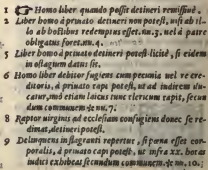 1 ☞ Homo liber quando possit detineri remissiuè.
2 Liber homo à priuato detineri non potest, nisi ab illo ab hostibus redemptus esset. nu. 3. nel à patre obligatus foret. nu. 4.
5 Liber homo à priuato detineri potest licitè, si eidem in ostagium datus sit.
6 Homo liber debitor fugiens cum pecunia vel re creditoris, à priuato capi potest, vt ad indicem ducatur, imò etiam laicus tunc clericum rapit, secundum communem ✠ nu. 7.
8 Raptor virginis ad ecclesiam confugiens donec se redimat, detineri potest.
9 Delinquens in flagranti repertur, si poena esset corporalis, à priuato capi potest, vt infra xx. horas iudici exhibeat secundum communem ✠ nu. 10.